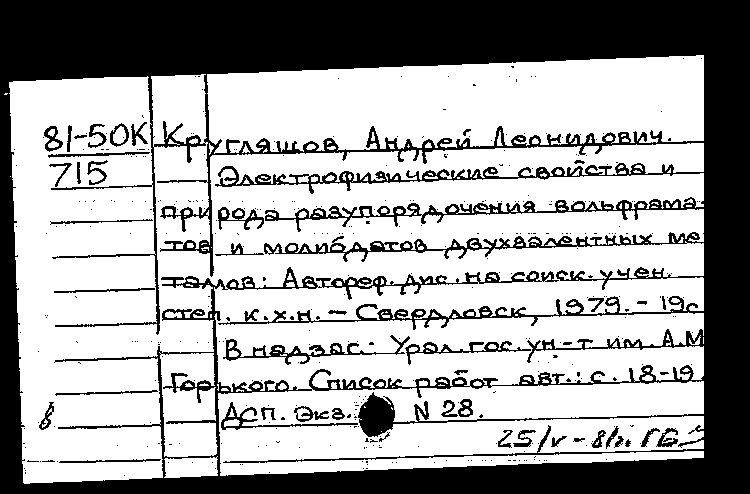 81-50К Кругляшов, Андрей Леонидович.
715 Электрофизические свойства и
природа разупорядочения вольфрама-
тов и молибдатов двухвалентных ме
таллов: Автореф. дис. на соиск. учен.
степ. к.х.н. — Свердловск, 1979. - 19с
В надзаг.: Урал. гос. ун-т им. А.М
Горького. Список работ авт.: с. 18-19.
Дсп. Экз. N 28.
25/v - 81г. ГБ